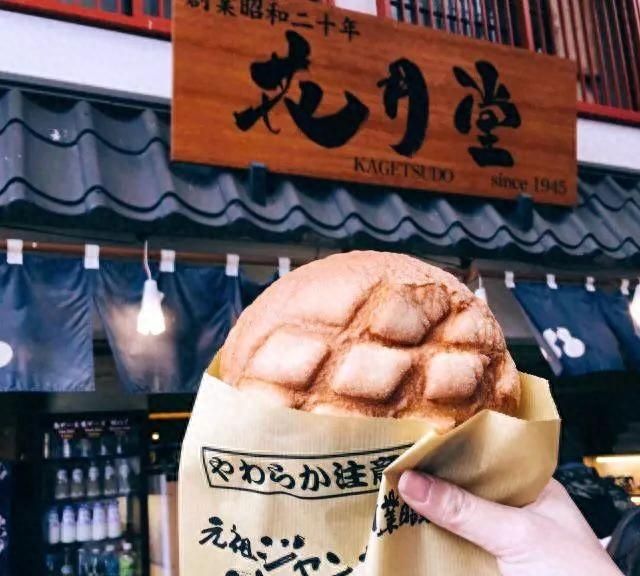 創業昭和二十年
花月堂
KAGETSUDO
since 1945
やわらか注意
元祖ジャン